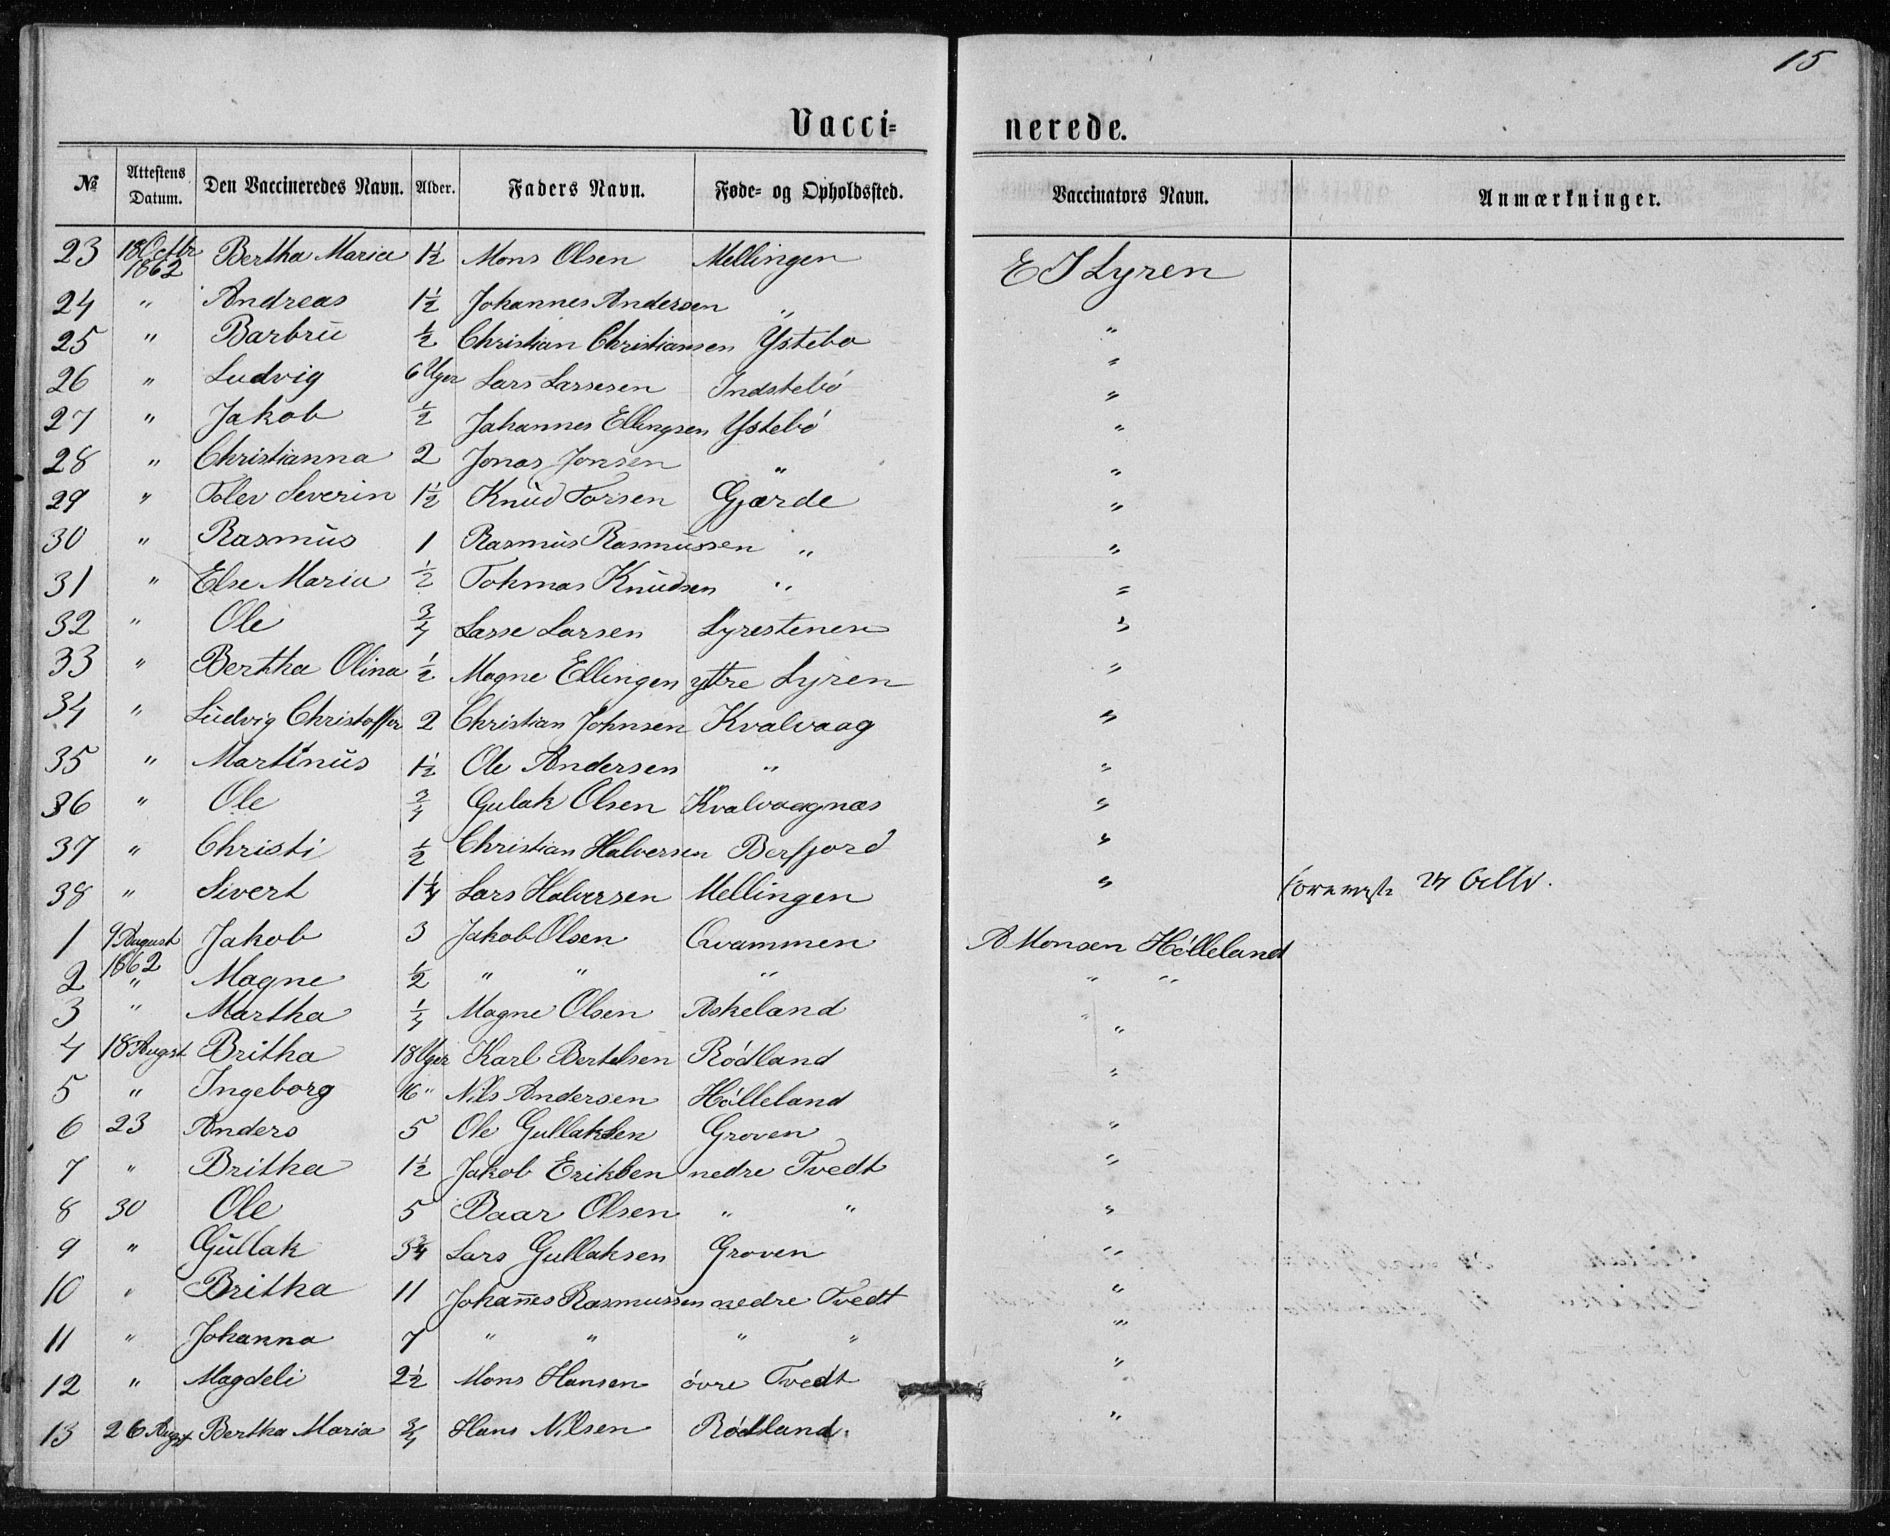 15
Vacci= nerede.
№ Attestens Datum. Den Vaccineredes Navn. Alder. Faders Navn. Føde- og Opholdssted. Vaccinators Navn. Anmærkninger.
23 18 Octbr 1862 Bertha Maria 1½ Mons Olsen Mellingen E I Lyren
24 " Andreas 1½ Johannes Andersen " "
25 " Barbru ½ Christian Christiansen Ystebo "
26 " Ludvig 6 Uger Lars Larsesen Indstebö "
27 " Jakob ½ Johannes Ellingsen Ystebö "
28 " Christianna 2 Jonas Jonsen " "
29 " Tolev Severin 1½ Knud Torsen Gjærde "
30 " Rasmus 1 Rasmus Rasmussen " "
31 " Else Maria ½ Tohmas Knudsen " "
32 " Ole ¾ Lasse Larsen Lyrestenen "
33 " Bertha Olina ½ Magne Ellingen yttre Lyren "
34 " Ludvig Christoffer 2 Christian Johnsen Kvalvaag "
35 " Martinus 1½ Ole Andersen " "
36 " Ole ¾ Gulak Olsen Kvalvaagnæs "
37 " Christi ½ Christian Halversen Berfjord "
38 " Sivert 1¼ Lars Halversen Mellingen "
1 9 August 1862 Jakob 3 Jakob Olsen Qvammen A Monsen Hölleland
2 " Magne ½ " " " " "
3 " Martha ¼ Magne Olsen Askeland " "
4 18 Augst Britha 18 Uger Karl Bertelsen Rödland "
5 " Ingeborg 16 " Nils Andersen Hölleland "
6 23 Anders 5 Ole Gullaksen Groven "
7 " Britha 1½ Jakob Eriksen nedre Tvedt "
8 30 Ole 5 Baar Olsen " " "
9 " Gullak 3¾ Lars Gullaksen Groven "
10 " Britha 11 Johannes Rasmussen nedre Tvedt "
11 " Johanna 7 " " " " "
12 " Magdeli 2½ Mons Hansen övre Tvedt "
13 26 Augst Bertha Maria ¾ Hans Nilsen Rödland. "